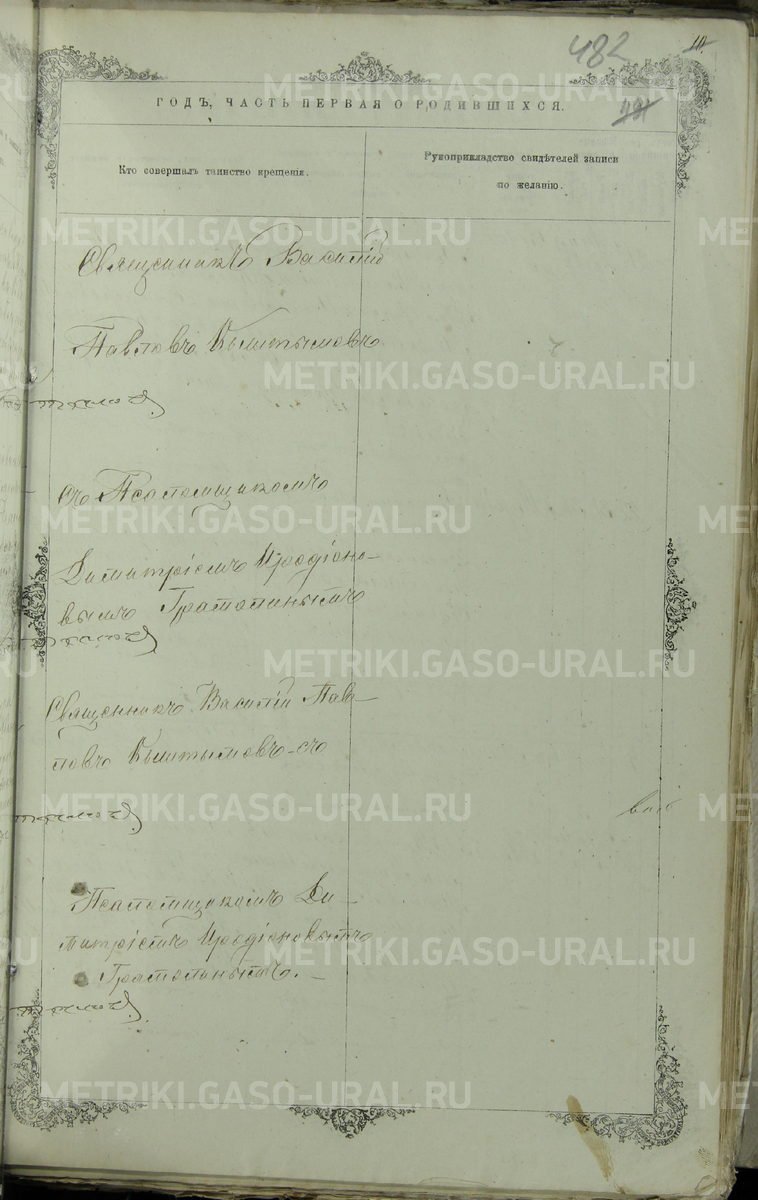 482
10.
ГОДЪ, ЧАСТЬ ПЕРВАЯ О РОДИВШИХСЯ.
481
Кто совершалъ таинство крещенія.
Рукоприкладство свидѣтелей записи
по желанію.
Священникъ Василій
Павловъ Кыштымовъ
съ Псаломщикомъ
Димитріемъ Иродіоно-
вымъ Грамолинымъ
Священникъ Василій Пав-
ловъ Кыштымовъ съ
Псаломщикомъ Ди-
митріемъ Иродіоновымъ
Грамолинымъ.
METRIKI.GASO-URAL.RU